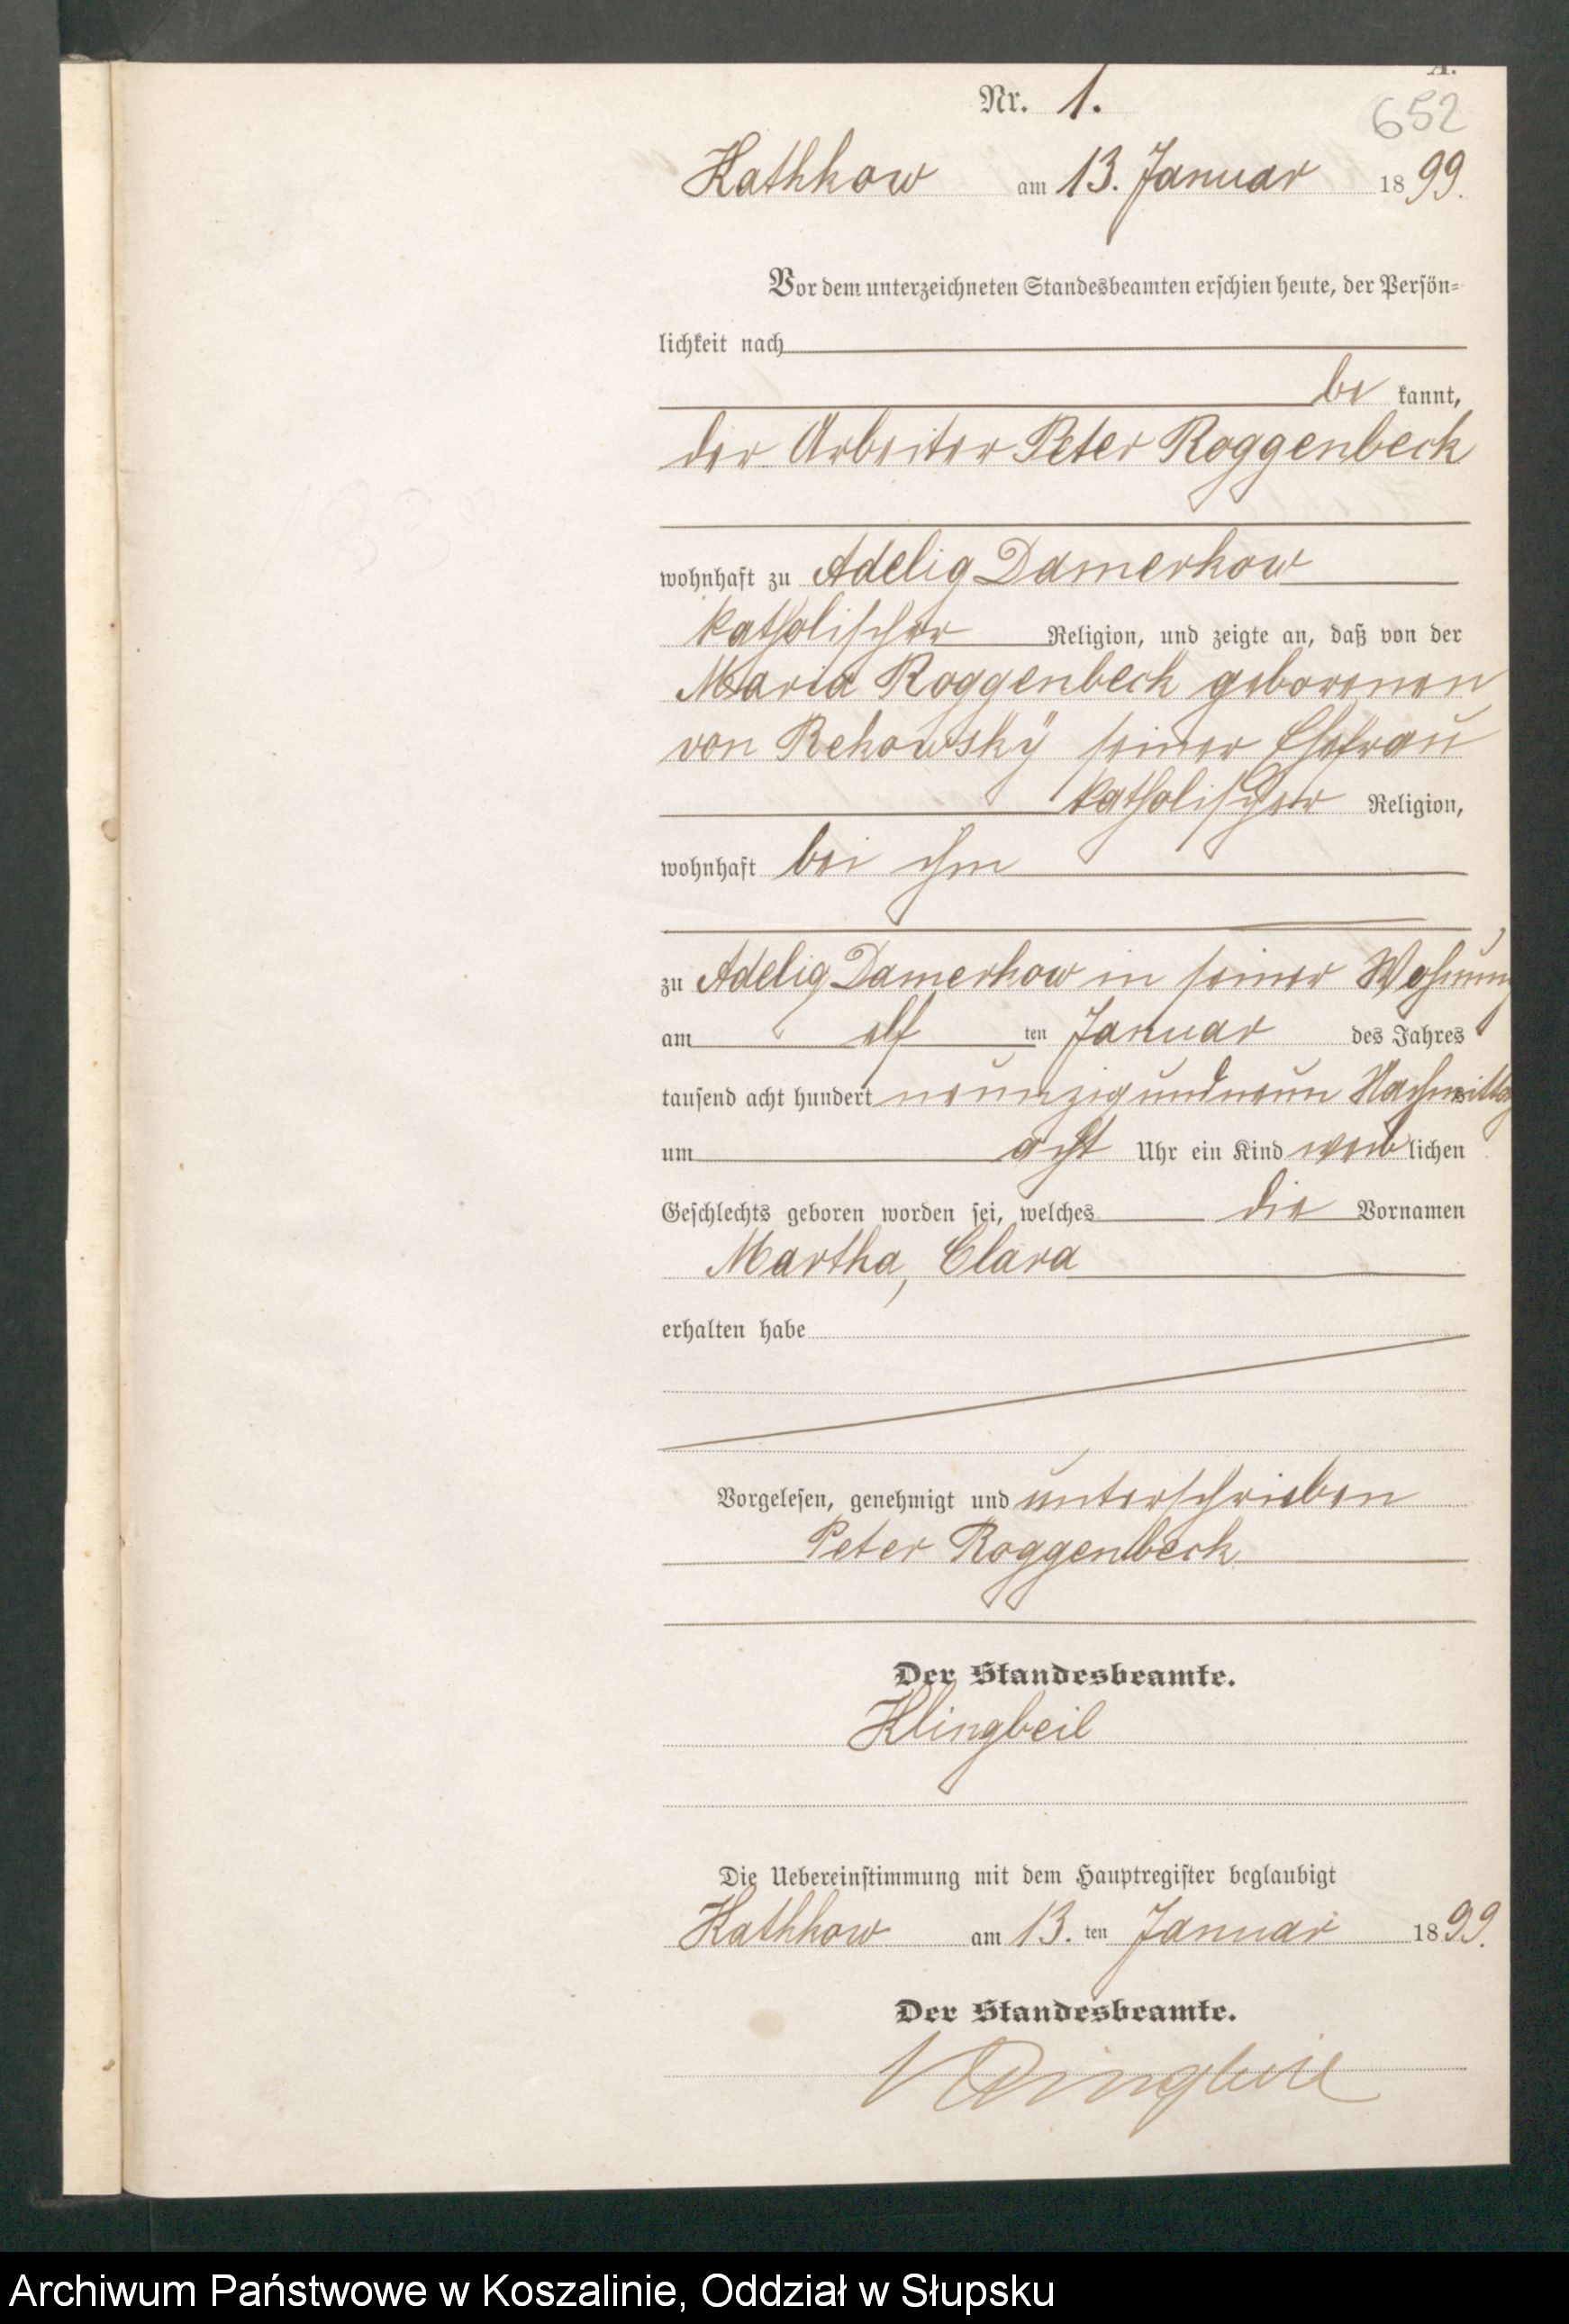 A.
Nr. 1.
652
Kathkow am 13. Januar 1899.
Vor dem unterzeichneten Standesbeamten erschien heute, der Persön-
lichkeit nach
be kannt,
der Arbeiter Peter Roggenbeck
wohnhaft zu Adelig Damerkow
katholischer Religion, und zeigte an, daß von der
Maria Roggenbeck geborenen
von Rekowsky seiner Ehefrau
katholischer Religion,
wohnhaft bei ihm
zu Adelig Damerkow in seiner Wohnung
am elf ten Januar des Jahres
tausend acht hundert neunzig und neun Nachmittag
um acht Uhr ein Kind weib lichen
Geschlechts geboren worden sei, welches die Vornamen
Martha, Clara
erhalten habe
Vorgelesen, genehmigt und unterschrieben
Peter Roggenbeck
Der Standesbeamte.
Klingbeil
Die Uebereinstimmung mit dem Hauptregister beglaubigt
Kathkow am 13. ten Januar 1899.
Der Standesbeamte.
Klingbeil
Archiwum Państwowe w Koszalinie, Oddział w Słupsku